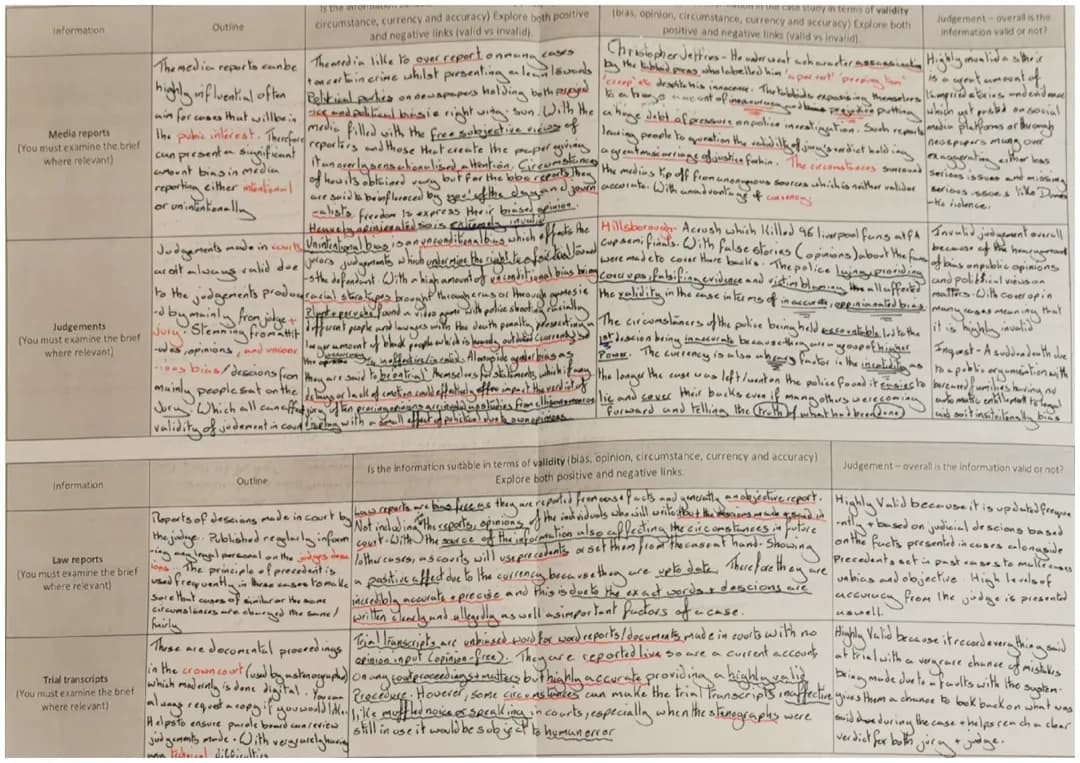 Information
Outline
Is the information
circumstance, currency and accuracy) Explore both positive
and negative links (valid vs invalid)
in the case study in terms of validity
(bias, opinion, circumstance, currency and accuracy) Explore both
positive and negative links (valid vs invalid)
Judgement – overall is the
information valid or not?
Media reports
(You must examine the brief
where relevant)
The media reports can be
highly influential often
aim for cases that will be in
the public interest. Therefore
can present a significant
amount bias in media
reporting either intentional
or unintentionally
The media like to over report on many cases
+ certain crime whilst presenting a lean towards
Political parties on newspapers holding both
and political bias i.e right wing sun. With the
media filled with the free subjective views of
reporters and those that create the paper giving
it an overly sensationalised attention. Circumstances
of how its obtained vary but for the reports they
are said to be influenced by of the day and journ
-alists freedom to express their biased opinion.
Heavily opinionated so is extremely invalid
Christopher Jeffries - He underwent a character assassination
by the tabloid press who labelled him 'a pervert' 'peeping tom'
'creep' etc despite his innocence. The tabloids exposing themselves
to a huge amount of inaccuracy and prejudice putting
a huge debt of pressure on police investigation. Such reports
leaving people to question the validity of jury's verdict holding
a great miscarriage of justice for him. The circumstances surround
the medias tip off from anonymous sources which is neither valid or
accurate. With an advantage of currency
Highly invalid as there
is a great amount of
tampered stories and evidence
which get posted on social
media platforms or through
newspapers many over
exaggerating either less
serious issues and missing
serious issues like Domes
-tic violence.
Judgements
(You must examine the brief
where relevant)
Judgements made in courts
are not always valid due
to the judgements produc
-ed by mainly from judge +
jury. Stemming from attit
-udes, opinions, and unconc
-ious bias/descions from
mainly people sat on the
Jury. Which all can effect
validity of judgement in court
Unintentional bias is an unconditional bias which effects the
jurors judgements which undermine the right to a fair trial towards
the defendant. With a high amount of unconditional bias being
racial stereotypes brought through eras or through games i.e
found on a video game with police shooting racially
different people and lawyers with the death penalty presenting a
larger amount of black people which is heavily outdated currency so
ineffective/invalid. Alongside gender bias as
they are said to be 'on trial' themselves for statements, which if any
delay or lack of emotion could effectively often impact the verdict of
jury often proving opinions
with a small effect of political due to own opinions
Hillsborough - A crush which killed 96 liverpool fans at FA
cup semi finals. With false stories (opinions) about the fans
were made to cover there backs. The police lying, providing
cover ups, falsifying evidence and victim blaming all affected
the validity in the case in terms of inaccurate, opinionated bias
The circumstances of the police being held accountable led to the
1st descion being inaccurate because they are a group of higher
Power. The currency is also a heavy factor in the invalidity as
the longer the case was left/went on the police found it easier to
lie and cover their backs even if many others were coming
forward and telling the (truth of what had been done)
Invalid judgement overall
because of the heavy amount
of bias on public opinions
and political views on
matters. With cover up in
many cases meaning that
it is highly invalid
Inquest - A sudden death due
to a public organisation with
bereaved families having no
automatic entitlement to legal
aid so it institutionally bias
Information
Outline
Is the information suitable in terms of validity (bias, opinion, circumstance, currency and accuracy)
Explore both positive and negative links.
Judgement – overall is the information valid or not?
Law reports
(You must examine the brief
where relevant)
Reports of descions made in court by
the judge. Published regularly inform
-ing any legal personal on the judges desc
-ions. The principle of precedent is
used frequently in these cases to make
sure that cases of similar or the same
circumstances are charged the same/
fairly
Law reports are bias free as they are reported from case facts and generally an objective report.
Not including the reports, opinions of the individuals who will write but the descions made + said in
court. With the source of the information also affecting the circumstances in future
/other cases, as courts will use precedents or set them from the case at hand. Showing
a positive affect due to the currency because they are up to date. Therefore they are
incredibly accurate + precise and this is due to the exact words + descions are
written clearly and allegedly as well as important factors of a case.
Highly Valid because it is updated freque
-ntly + based on judicial descions based
on the facts presented in cases alongside
Precedents set in past cases to make cases
unbias and objective. High levels of
accuracy from the judge is presented
aswell.
Trial transcripts
(You must examine the brief
where relevant)
These are documental proceedings
in the crown court (used by a stenograph)
which modernly is done digital. You can
always request a copy if you would like.
Helps to ensure parole board can review
judgements made. With very rarely having
technical difficulties
Trial Transcripts are unbiased word for word reports/documents made in courts with no
opinion input (opinion-free). They are reported live so are a current account,
on any court proceedings + matters but highly accurate providing a highly valid
Procedure. However, some circumstances can make the trial transcripts ineffective
like muffled noice or speaking in courts, especially when the stenographs were
still in use it would be subject to human error
Highly Valid because it records everything said
at trial with a very rare chance of mistakes
being made due to a faults with the system.
gives them a chance to look back on what was
said down during the case + helps reach a clear
verdict for both jury + judge.